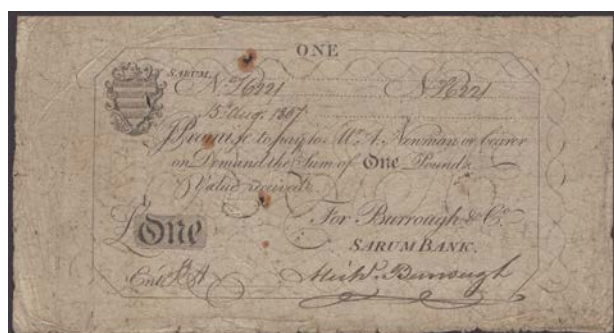 ONE
SARUM. No. 16221 No. 16221
15 Aug. 1807
I Promise to pay to Mr. A. Newman or bearer
on Demand the Sum of One Pound
Value received
For Burrough & Co.
£ One
SARUM BANK.
Entd. Michl. Burrough